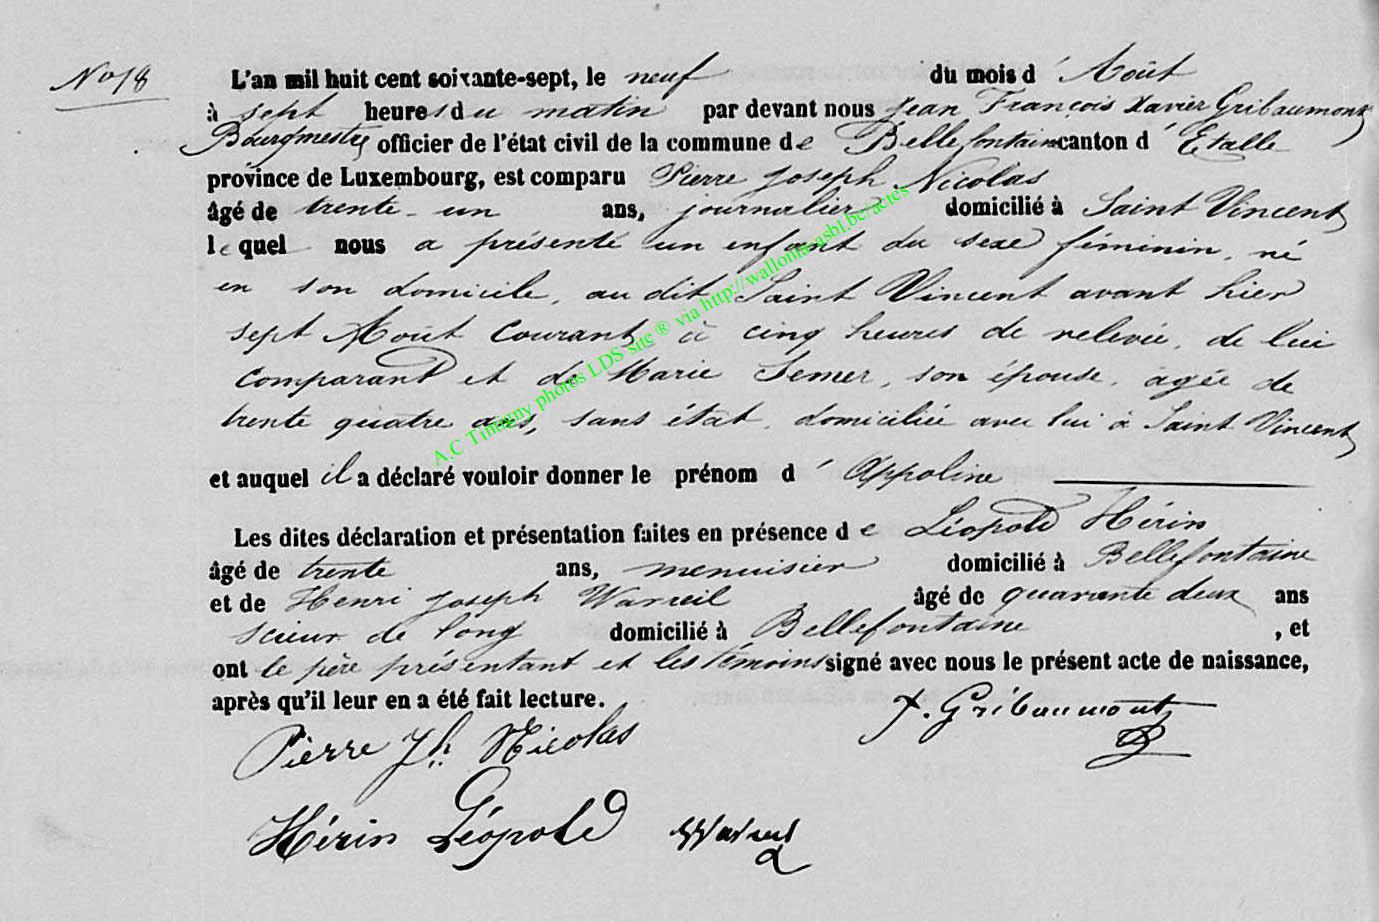 No 18
L'an mil huit cent soixante-sept, le neuf du mois d'Août
à sept heures du matin par devant nous Jean François Xavier Gribaumont
Bourgmestre officier de l'état civil de la commune de Bellefontaine canton d'Etalle
province de Luxembourg, est comparu Pierre Joseph Nicolas
âgé de trente-un ans, journalier domicilié à Saint Vincent
lequel nous a présenté un enfant du sexe féminin, né
en son domicile, au dit Saint Vincent avant hier
sept Août courant à cinq heures de relevée, de lui
comparant et de Marie Semer, son épouse, agée de
trente quatre ans, sans état, domiciliée avec lui à Saint Vincent
et auquel il a déclaré vouloir donner le prénom d'Appoline
Les dites déclaration et présentation faites en présence de Léopold Hérin
âgé de trente ans, menuisier domicilié à Bellefontaine
et de Henri Joseph Warreil âgé de quarante deux ans
scieur de long domicilié à Bellefontaine, et
ont le père présentant et les témoins signé avec nous le présent acte de naissance,
après qu'il leur en a été fait lecture.
Pierre Jh Nicolas
X. Gribaumont
Hérin Léopold
A.C Tintigny photos LDS site ® via http://wallonia.asbl.be/actes